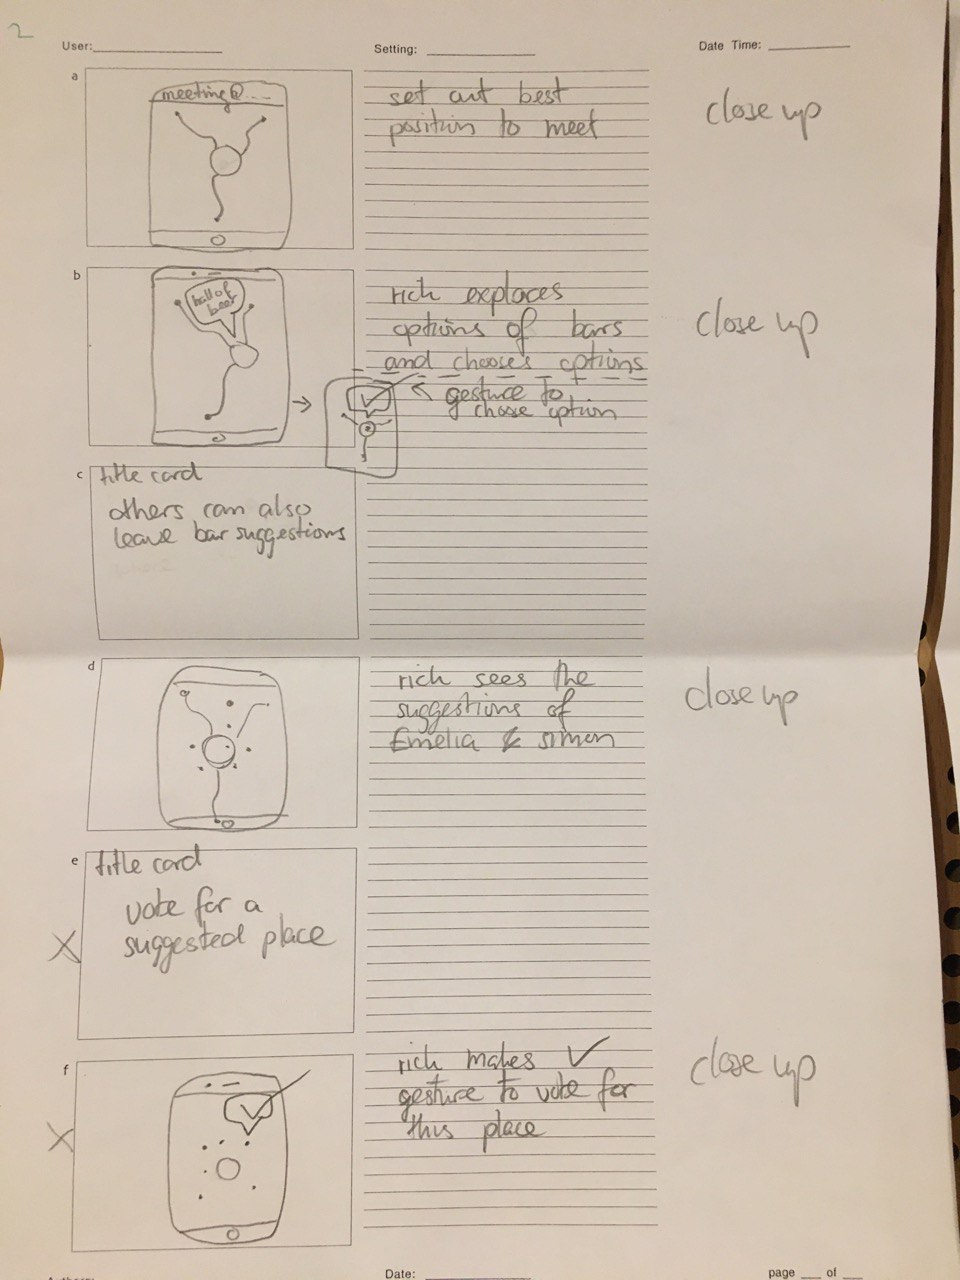 2
User:
Setting:
Date Time:
a
meeting @....
set out best
position to meet
close up
b
hall of
beer
rich explores
options of bars
and chooses options
gesture to
chose option
close up
c
title card
others can also
leave bar suggestions
d
rich sees the
suggestions of
Emelia & simon
close up
e
title card
vote for a
suggested place
f
rich makes ✓
gesture to vote for
this place
close up
Date:
page of